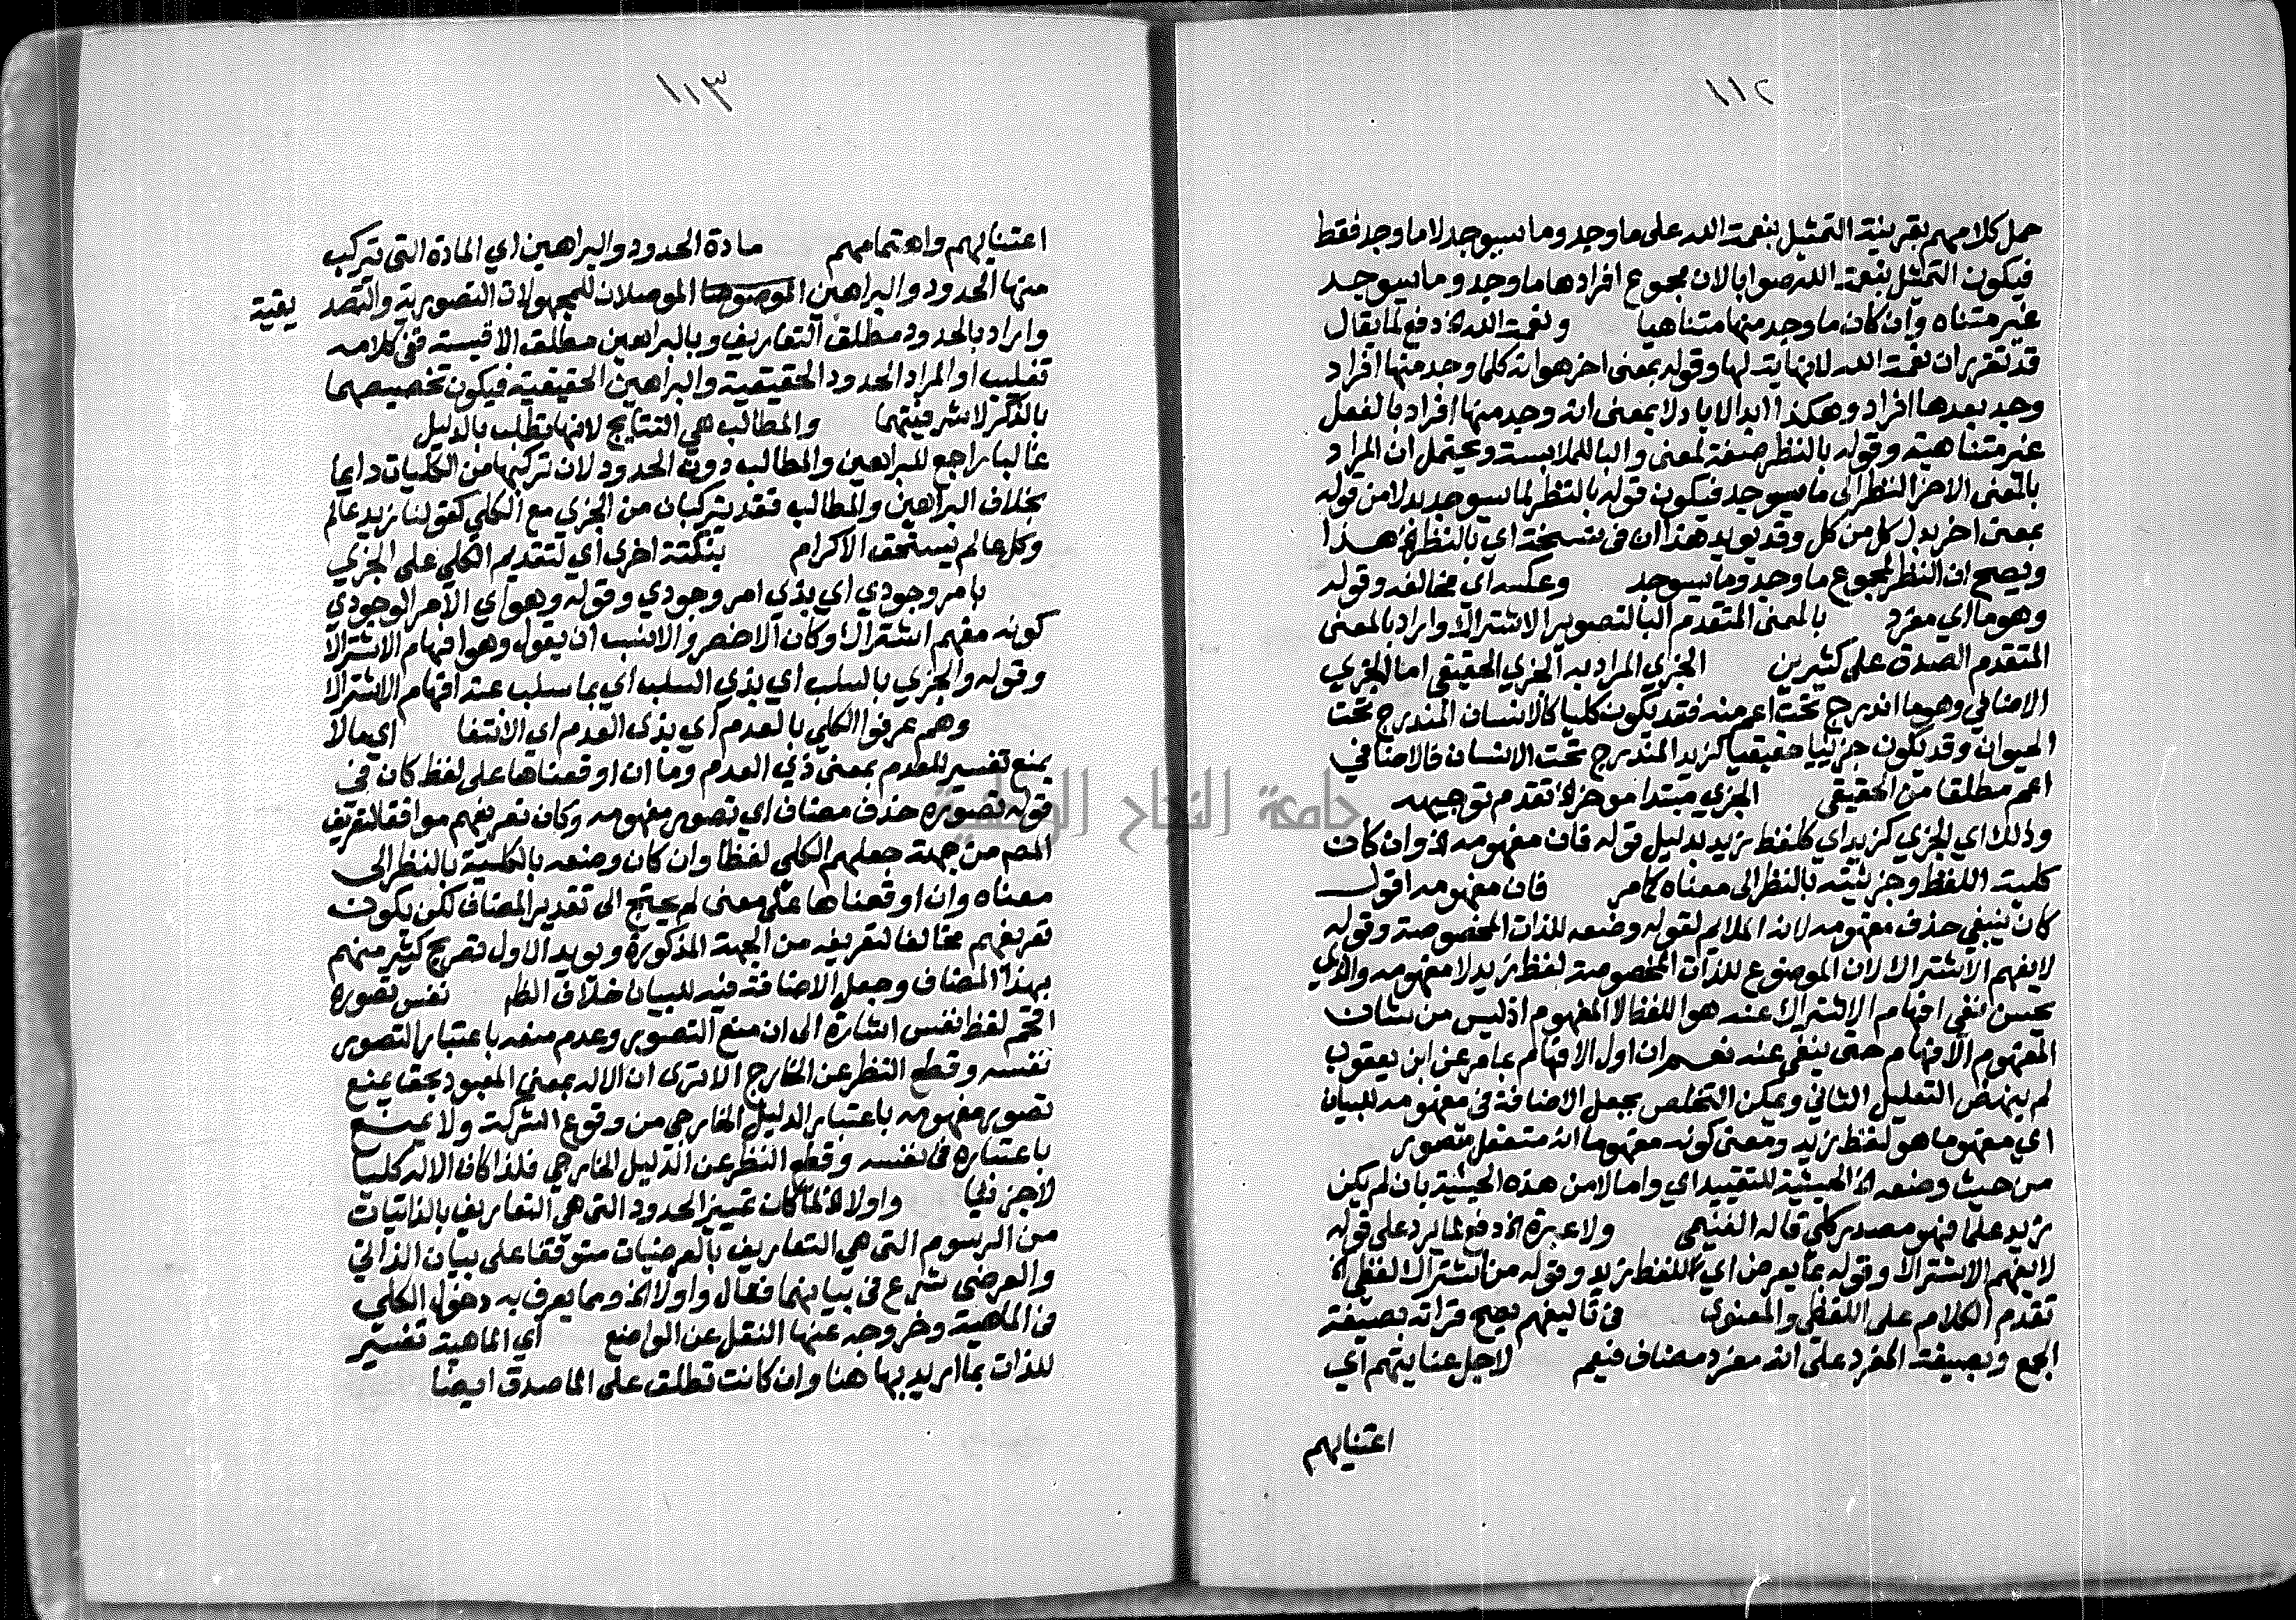 ١١٢
حمل كلامهم بقرينة التمثيل بنعمة الله على ما وجد وما سيوجد لا ما وجد فقط
فيكون التمثيل بنعمة الله صوابا لان مجموع افرادها ما وجد وما سيوجد
غير متناه وان كان ما وجد منها متناهيا ونعمة الله الخ دفع لما يقال
قد تقرر ان نعمة الله لا نهاية لها وقوله بمعنى اخر هو انه كلما وجد منها افراد
وجد بعدها افراد وهكذا ابد الاباد لا بمعنى انه وجد منها افراد بالفعل
غير متناهية وقوله بالنظر صفة لمعنى والبا للملابسة ويحتمل ان المراد
بالمعنى الاخر النظر الى ما سيوجد فيكون قوله بالنظر لما سيوجد بدلا من قوله
بمعنى اخر بدل كل من كل وقد يويد هذا ان في نسخة اي بالنظر الخ هذا
ويصح ان النظر لمجموع ما وجد وما سيوجد وعكسه اي مخالفه وقوله
وهو ما اي مفرد بالمعنى المتقدم البا لتصوير الاشتراك واراد بالمعنى
المتقدم الصدق على كثيرين الجزي المراد به الجزي الحقيقي اما الجزي
الاضافي وهو ما اندرج تحت اعم منه فقد يكون كليا كالانسان المندرج تحت
الحيوان وقد يكون جزئيا حقيقيا كزيد المندرج تحت الانسان فالاضافي
اعم مطلقا من الحقيقي الجزي مبتدا موخر الخ تقدم توجيهه
وذلك اي الجزي كزيد اي كلفظ زيد بدليل قوله فان مفهومه الخ وان كانت
كلية اللفظ وجزئيته بالنظر الى معناه كما مر فان مفهومه اقول
كان ينبغي حذف مفهومه لانه الملايم لقوله وضعه للذات المخصوصة وقوله
لا يفهم الاشتراك لان الموضوع للذات المخصوصة لفظ زيد لا مفهومه والذي
يحسن نفي افهام الاشتراك عنه هو اللفظ لا المفهوم اذ ليس من شان
المفهوم الافهام حتى ينفى عنه نعم ان اول الافهام بما مر عن ابن يعقوب
لم ينهض التعليل الثاني ويمكن التخلص بجعل الاضافة في مفهومه للبيان
اي مفهوما هو لفظ زيد ومعنى كونه مفهوما انه متعقل متصور
من حيث وضعه الخ الحيثية للتقييد اي واما لا من هذه الحيثية بان لم يكن
زيد علما فهو مصدر كلي قاله الغنيمي ولا عبرة الخ دفع لما يرد على قوله
لا يفهم الاشتراك وقوله بما يعرض اي للفظ زيد وقوله من اشتراك لفظي الخ
تقدم الكلام على اللفظي والمعنوي في تاليفهم يصح قراته بصيغة
الجمع وبصيغة المفرد على انه مفرد مضاف فيعم لاجل عنايتهم اي
اعتنايهم
١١٣
اعتنايهم واهتمامهم مادة الحدود والبراهين اي المادة التي تركب
منها الحدود والبراهين الموصلان للمجهولات التصورية والتصد يقية
واراد بالحدود مطلق التعاريف وبالبراهين مطلق الاقيسة ففي كلامه
تغليب او المراد الحدود الحقيقية والبراهين الحقيقية فيكون تخصيصهما
بالذكر لاشرفيتهما والمطالب هي النتايج لانها تطلب بالدليل
غالبا راجع للبراهين والمطالب دون الحدود لان تركبها من الكليات دايما
بخلاف البراهين والمطالب فقد يتركبان من الجزي مع الكلي كقولنا زيد عالم
وكل عالم يستحق الاكرام بنكتة اخرى اي لتقديم الكلي على الجزي
بامر وجودي اي بذي امر وجودي وقوله وهو اي الامر الوجودي
كونه مفهم اشتراك وكان الاخصر والانسب ان يقول وهو افهام الاشتراك
وقوله والجزي بالسلب اي بذي السلب اي بما سلب عنه افهام الاشتراك
وهم عرفوا الكلي بالعدم اي بذي العدم اي الانتفا اي مالا
يمنع تفسير للعدم بمعنى ذي العدم وما ان اوقعناها على لفظ كان في
قوله تصوره حذف مضاف اي تصور مفهومه وكان تعريفهم موافقا لتعريف
المص من جهة جعلهم الكلي لفظا وان كان وصفه بالكلية بالنظر الى
معناه وان اوقعناها على معنى لم يحتج الى تقدير المضاف لكن يكون
تعريفهم مخالفا لتعريفه من الجهة المذكورة ويويد الاول تصريح كثير منهم
بهذا المضاف وجعل الاضافة فيه للبيان خلاف الظ نفس تصوره
اقحم لفظ نفس اشارة الى ان منع التصور وعدم منعه باعتبار التصور
نفسه وقطع النظر عن الخارج الا ترى ان الاله بمعنى المعبود بحق يمنع
تصور مفهومه باعتبار الدليل الخارجي من وقوع الشركة ولا يمنع
باعتباره في نفسه وقطع النظر عن الدليل الخارجي فلذا كان الاله كليا
لا جزئيا واولا الخ لما كان تمييز الحدود التي هي التعاريف بالذاتيات
من الرسوم التي هي التعاريف بالعرضيات متوقفا على بيان الذاتي
والعرضي شرع في بيانهما فقال واولا الخ ومما يعرف به دخول الكلي
في الماهية وخروجه عنها النقل عن الواضع اي الماهية تفسير
للذات بما اريد بها هنا وان كانت تطلق على الماصدق ايضا
جامعة النجاح الوطنية